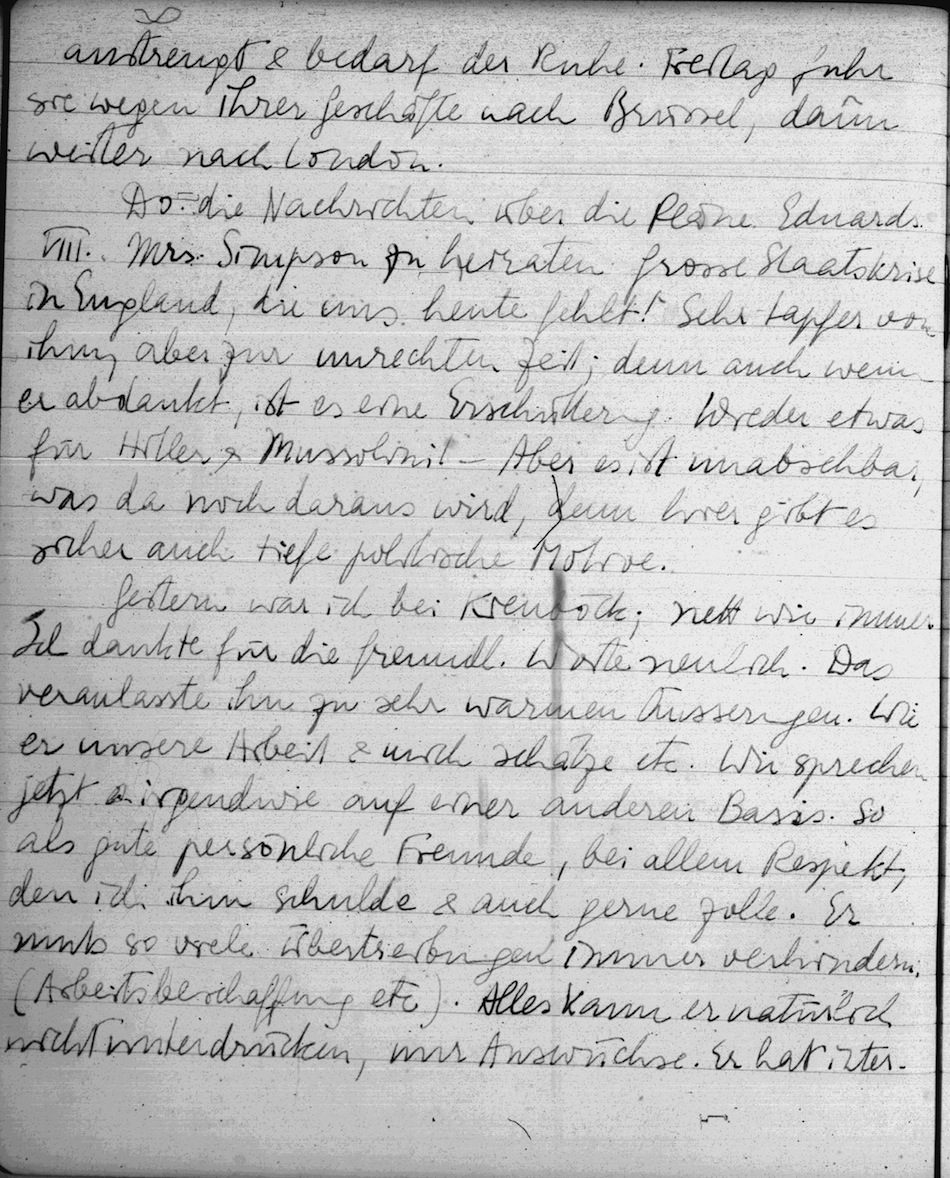 anstrengt & bedarf der Ruhe. Freitag fuhr
sie wegen ihrer Geschäfte nach Brüssel, dann
weiter nach London.
Do. die Nachrichten über die Pläne Eduards
VIII. Mrs. Simpson zu heiraten. Grosse Staatskrise
in England, die uns heute fehlt! Sehr tapfer von
ihm, aber zur unrechten Zeit; denn auch wenn
er abdankt, ist es eine Erschütterung. Wieder etwas
für Hitler & Mussolini! – Aber es ist unabsehbar,
was da noch daraus wird, denn hier gibt es
sicher auch tiefe politische Motive.
Gestern war ich bei Kienböck; nett wie immer.
Ich dankte für die freundl. Worte neulich. Das
veranlasste ihn zu sehr warmen Äusserungen. Wie
er unsere Arbeit & mich schätze etc. Wir sprechen
jetzt irgendwie auf einer anderen Basis. So
als gute persönliche Freunde, bei allem Respekt,
den ich ihm schulde & auch gerne zolle. Er
muss so viele Übertreibungen immer verhindern.
(Arbeitsbeschaffung etc). Alles kann er natürlich
nicht unterdrücken, nur Auswüchse. Er hat inter-